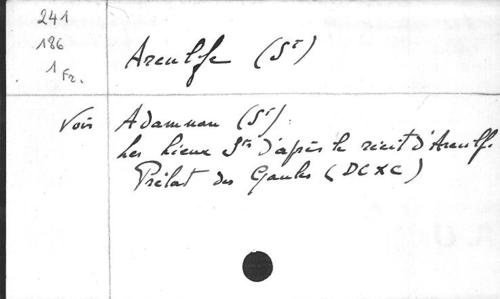 241
186
1 Fr.
Arculfe (St)
Voir Adamnan (St)
Les Lieux Sts d'après le récit d'Arculfe
Prélat des Gaules (DCXC)